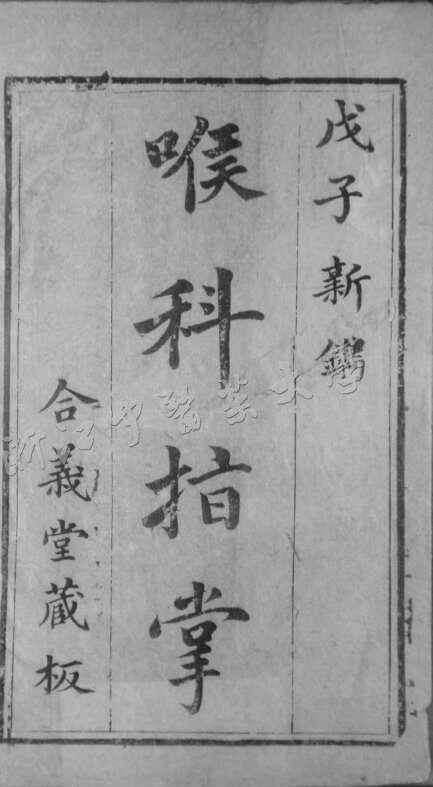 戊子新鐫
喉科指掌
合義堂藏板
浙江中醫藥大學